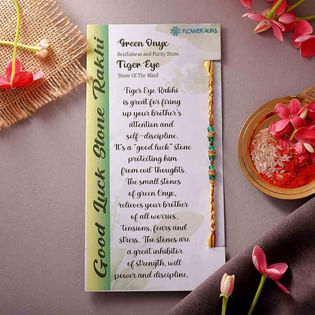 FLOWER AURA
Green Onyx
Restfulness and Purity Stone
Tiger Eye
Stone Of The Mind
Good Luck Stone Rakhi
Tiger Eye Rakhi
is great for firing
up your brother's
attention and
self-discipline.
It's a "good luck" stone
protecting him
from evil thoughts.
The small stones
of green Onyx,
relieves your brother
of all worries,
tensions, fears and
stress. The stones are
a great inhibitor
of strength, will
power and discipline.